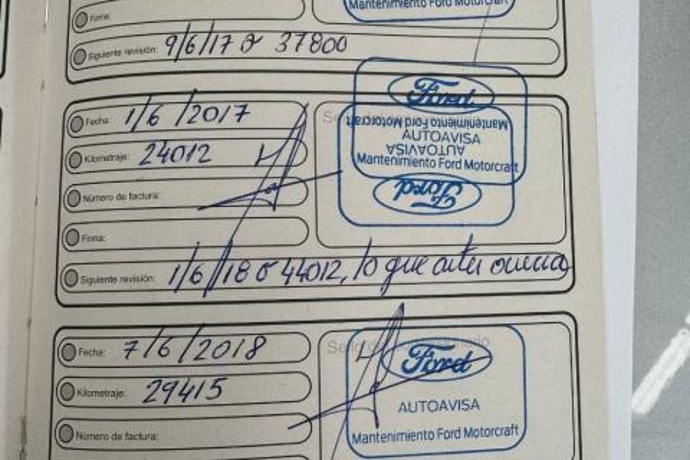 Mantenimiento Ford Motorcraft
Firma:
Siguiente revisión: 9/6/17 ó 37800
Fecha: 1/6/2017
Kilometraje: 24012
Número de factura:
Firma:
Ford
Mantenimiento Ford Motorcraft
AUTOAVISA
AUTOAVISA
Mantenimiento Ford Motorcraft
Ford
Siguiente revisión: 1/6/18 ó 44012, lo que antes ocurra
Fecha: 7/6/2018
Kilometraje: 29415
Número de factura:
Ford
AUTOAVISA
Mantenimiento Ford Motorcraft